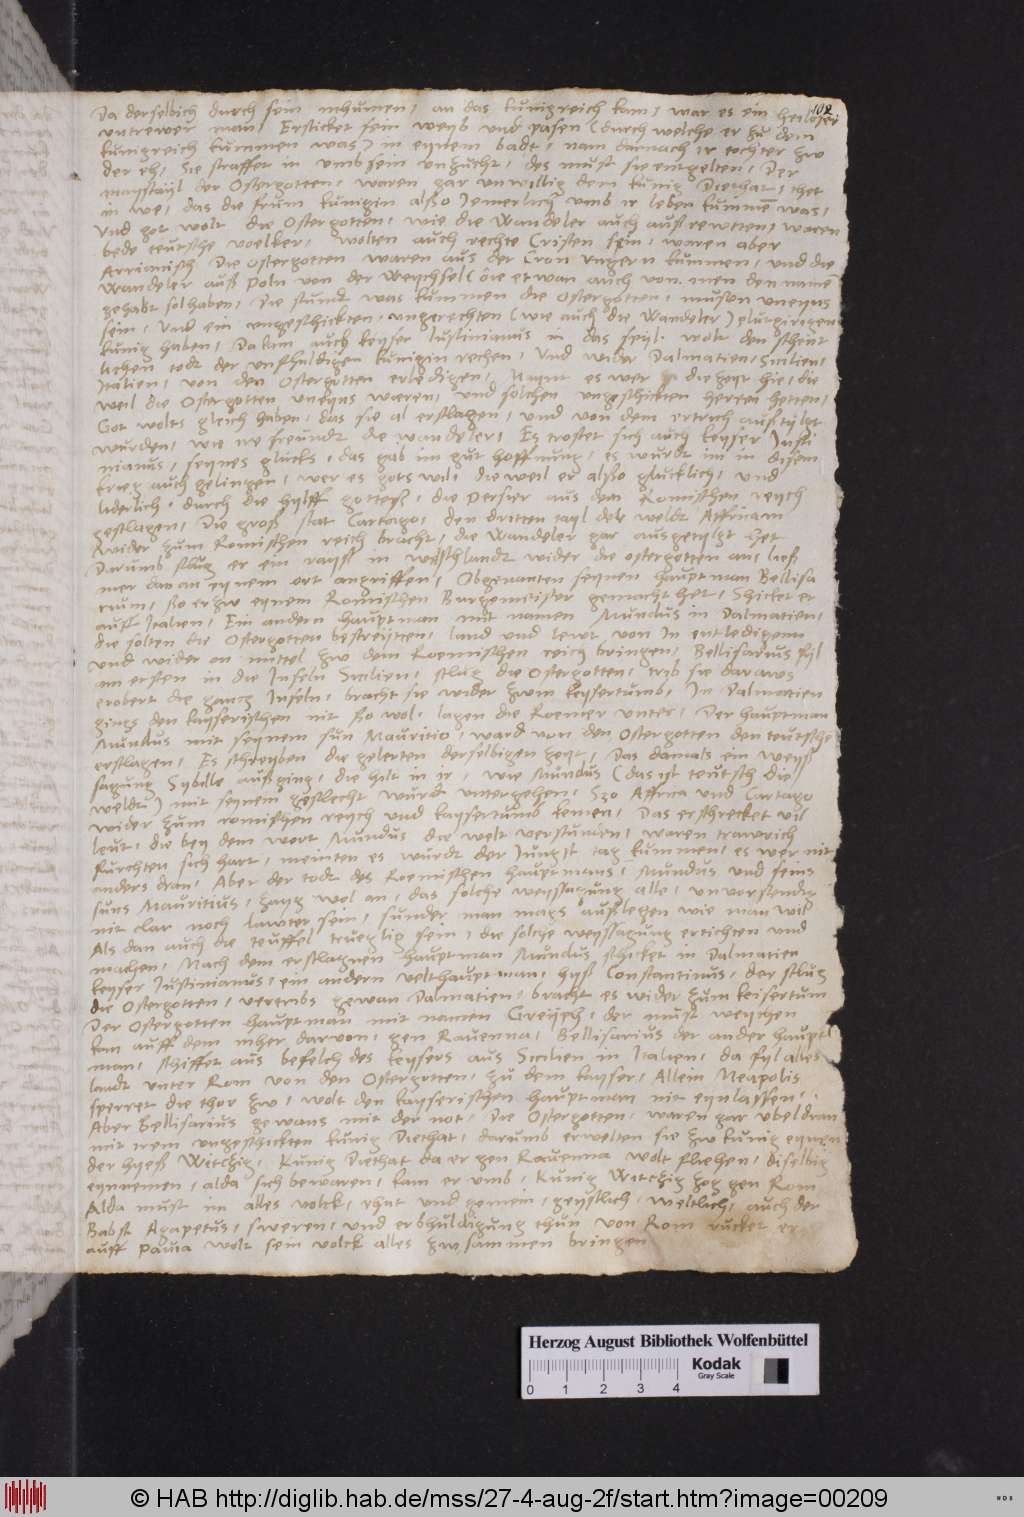 102
Da derselbich durch sein mhumen, an das kunigreich kam, war es ein heiloser
untrewer man, Ersticket sein weyb und pasen (durch welche er zu dem
kunigreich kummen was) in eynem badt, nam darnach ir tochter zw
der eh, Sie straffet in umb sein unzucht, des must sie entgelten, Der
maystayl der Ostergotten, waren gar unwillig dem kunig Diethat, thet
in we, das die frum kunigin also iemerlich umb ir leben kummen was,
Und got wolt die Ostergotten, wie die Wandeler auch auß rewtten, waren
bede teutsche voelker, wolten auch rechte Cristen sein, waren aber
Arrianisch Die Ostergotten waren aus der Cron Ungern kummen, und die
Wandeler auß Poln von der Weychsel (die etwan auch von inen den namen
gehabt sol haben, Die stundt was kummen die Ostergotten, musten uneyns
sein, Und ein ungeschickten, ungerechten (wie auch die Wandeler) plutgirigen
kunig haben, Da kam auch keyser Iustinianus in das speyl, wolt den schent
lichen todt der unschuldigen kunigin rechen, Und wider Dalmatien, Sicilien,
Italien, von den Ostergotten erledigen, Maynt es wer die zeyt hie, die
weil die Ostergotten uneyns waeren, und solchen ungeschickten herren hetten,
Got wolts gleich haben, das sie al erslagen, und von dem ertrich auß tylgt
wurden, wie ire freundt die wandeler, Es trostet sich auch keyser Justi
nianus, seynes glucks, das gab im gut hoffnung, es wurdt im in disem
krieg auch gelingen, wer es gots wil, die weil er also glucklich, und
liderlich, durch die hylff gottes, die Persier aus dem Romischen reych
geslagen, Die groß stat Cartago, den dritten tayl der weldt Affricam
wider zum Romischen reich bracht, die Wandeler gar ausgetylgt het
Darumb slug er ein rayß in welschlandt wider die ostergotten an, ließ
mer dan an eynem ort angriffen, Obgenanten seynen hauptman Bellisa
rium, so er zw eynem Romischen Burgemeister gemacht het, Shicket er
auff Italien, Ein andern hauptman mit namen Mundus in Dalmatien,
die solten die Ostergotten bestreytten, land und lewt, von in entledigenn
und wider on mittel zw dem Roemischen reich bringen, Bellisarius fyl
am ersten in die Inseln Sicilien, slug die Ostergotten, trib sie daraws
erobert die gantz Inseln, bracht sie wider zwm keysertumb, In Dalmatien
gings den kayserischen nit so wol, lagen die Roemer unter, Der hauptman
Mundus mit seynem sun Mauritio, ward von den Ostergotten den teutsche
erslagen, Es schreyben die gelerten derselbigen zeyt, Das damals ein weyß
sagung Sybille außging, die hilt in ir, wie Mundus (das ist teutsch die
weldt) mit seynem geslecht wurdt untergehen, Szo Affrica und Cartago
wider zum romischen reych und kaysertumb kemen, Das erschrecket vil
leut, die bey dem wort Mundus die welt verstunden, waren trawrich
furchten sich hart, meinten es wurdt der Jungst tag kummen, es wer nit
anders dran, Aber der todt des Roemischen hauptmans, Mundus und seins
suns Mauritius, zayg wol an, das solche weyssagung alle, unvorstendig
nit clar noch lawter sein, sunder man mags außlegen wie man wil
Als dan auch die teuffel trueglig sein, die solche weyssagung ertichten und
machen, Nach dem erslagnen hauptman Mundus schicket in Dalmatien
keyser Justinianus, ein andern velthauptman, hyß Constantinus, der slug
die Ostergotten, vertribs gewan Dalmatien, bracht es wider zum keisertum
Der Ostergotten hauptman mit namen Greyph, der must weychen
kam auff dem mher darvon, gen Ravenna, Bellisarius der ander haupt
man, schiffet aus befelch des keysers aus Sicilien in Italien, da fyl alles
landt unter Rom von den Ostergotten, zu dem kayser, Allein Neapolis
sperret die thor zw, wolt den kayserischen hauptman nit eynlassen,
Aber Bellisarius gewans mit der not, Die Ostergotten, waren gar ubel dran
mit irem ungeschickten kunig Diethat, darumb erwelten sie zw kunig eynen
der hyeß Witchig, Kunig Diethat da er gen Ravenna wolt fliehen, diselbig
eynnemen, alda sich bewaren, kam er umb, Kunig Witchig zog gen Rom
Alda must im alles volck, rhat und gemein, geystlich, weltlich, auch der
Babst Agapetus, sweren, und erbhuldigung thun von Rom rucket er
auff Pavia wolt sein volck alles zwsammen bringen
Herzog August Bibliothek Wolfenbüttel
Kodak
Gray Scale
0 1 2 3 4
© HAB http://diglib.hab.de/mss/27-4-aug-2f/start.htm?image=00209